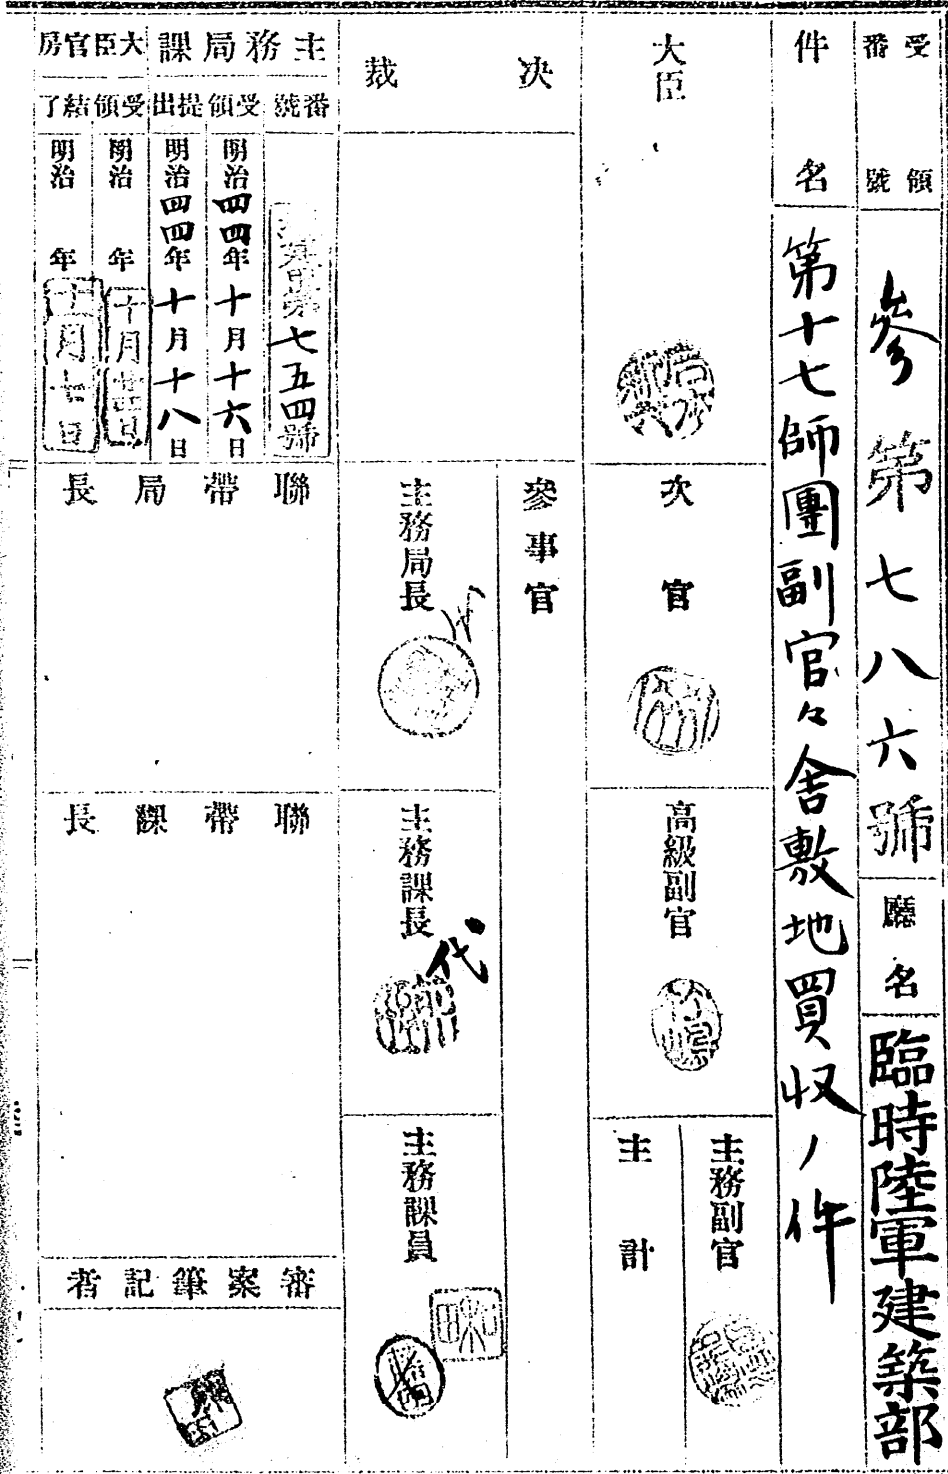 受領番號
參第七八六號
廳名
臨時陸軍建築部
件名
第十七師團副官々舍敷地買収ノ件
大臣
次官
高級副官
主務副官
主計
決裁
參事官
主務局長
主務課長
代
主務課員
主務局課
番號
第七五四號
受領
明治四四年十月十六日
提出
明治四四年十月十八日
大臣官房
受領
明治 年
結了
明治 年
聯帶局長
聯帶課長
審案筆記者